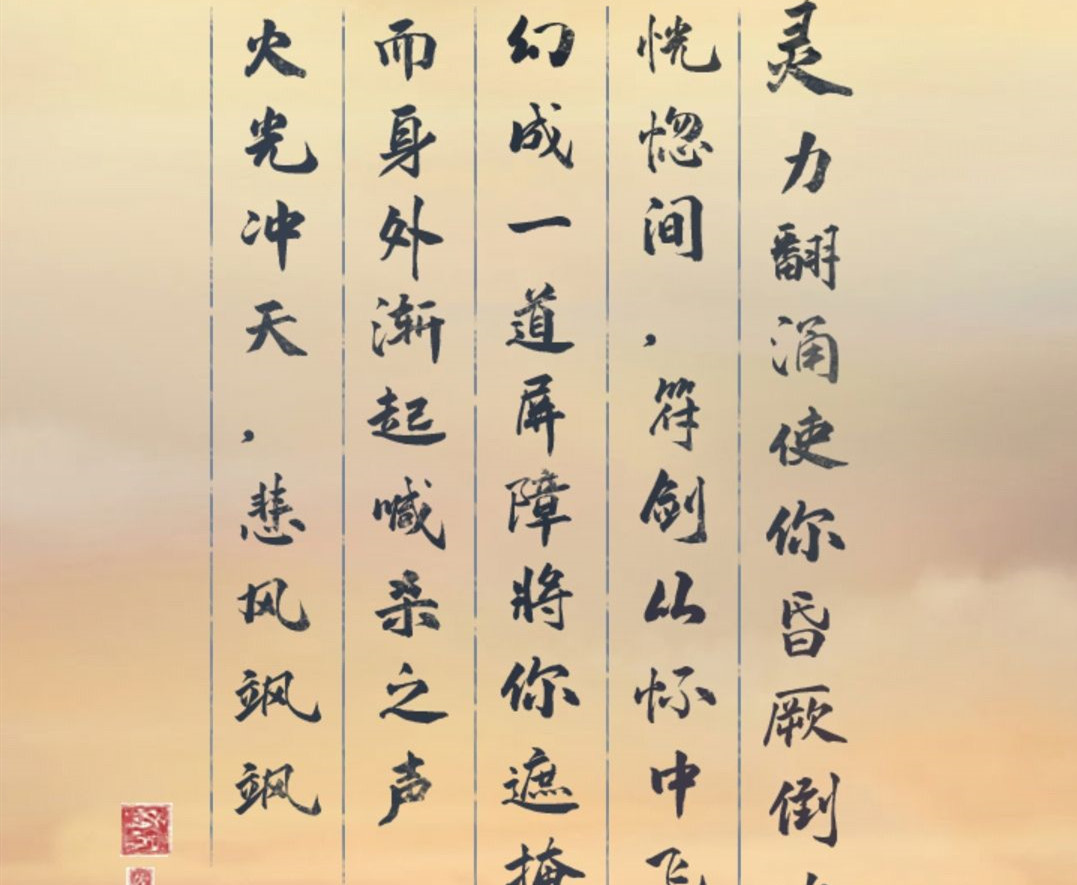 灵力翻涌使你昏厥倒
恍惚间，符剑从怀中飞
幻成一道屏障将你遮掩
而身外渐起喊杀之声
火光冲天，悲风飒飒